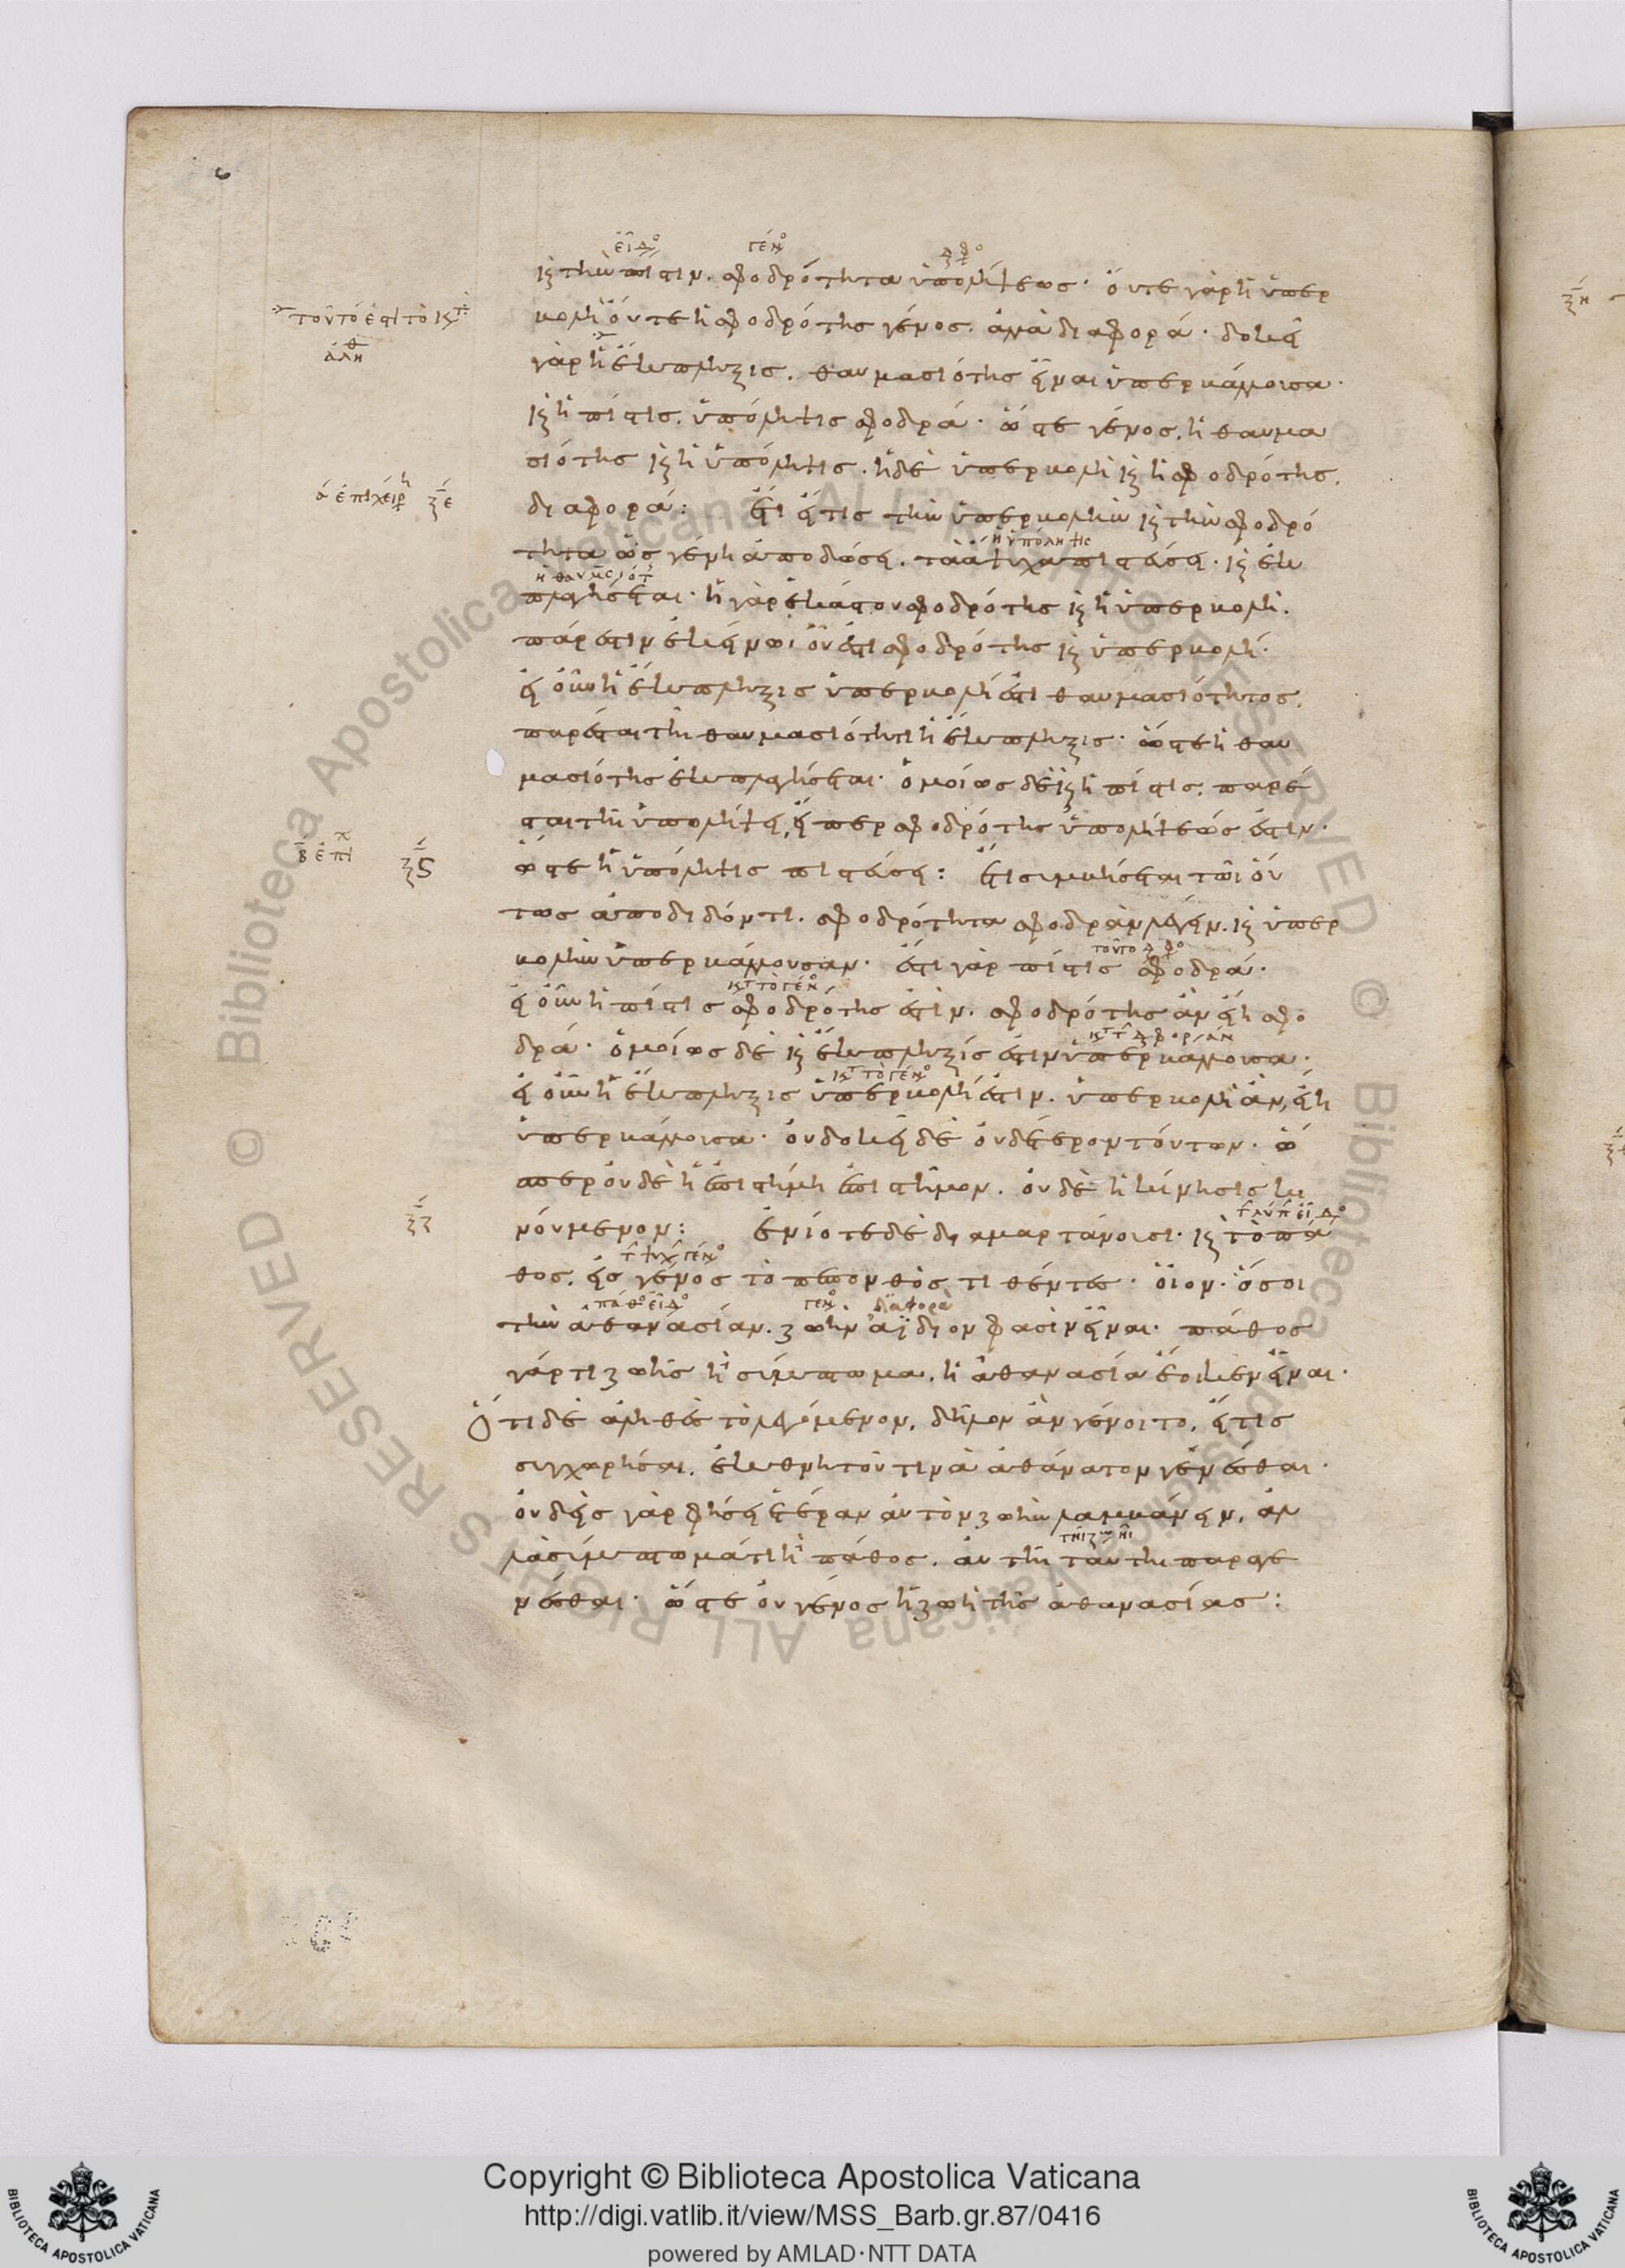 καὶ τὴν πίστιν. σφοδρότητα ὑπολήψεως· οὔτε γὰρ ἡ ὑπερ
βολὴ οὔτε ἡ σφοδρότης γένος. ἀλλὰ διαφορά· δοκεῖ
γὰρ ἡ ἔκπληξις. θαυμασιότης εἶναι ὑπερβάλλουσα·
καὶ ἡ πίστις. ὑπόληψις σφοδρά· ὥστε γένος. ἡ θαυμα
σιότης καὶ ἡ ὑπόληψις. ἡ δὲ ὑπερβολὴ καὶ ἡ σφοδρότης.
διαφορά: ἔτι εἴ τις τὴν ὑπερβολὴν καὶ τὴν σφοδρό
τητα ὡς γένη ἀποδώσει. τὰ ἄψυχα πιστεύσει· καὶ ἐκ
πλαγήσεται· ἡ γὰρ ἑκάστου σφοδρότης καὶ ἡ ὑπερβολή.
πάρεστιν ἐκείνωι οὗ ἐστι σφοδρότης καὶ ὑπερβολή·
εἰ οὖν ἡ ἔκπληξις ὑπερβολή ἐστι θαυμασιότητος.
παρέσται τῆι θαυμασιότητι ἡ ἔκπληξις· ὥστε ἡ θαυ
μασιότης ἐκπλαγήσεται· ὁμοίως δὲ καὶ ἡ πίστις. παρέ
σται τῆι ὑπολήψει, εἴπερ σφοδρότης ὑπολήψεώς ἐστιν·
ὥστε ἡ ὑπόληψις πιστεύσει: ἔτι συμβήσεται τῶι οὕ
τως ἀποδιδόντι. σφοδρότητα σφοδρὰν λέγειν. καὶ ὑπερ
βολὴν ὑπερβάλλουσαν· ἔστι γὰρ πίστις σφοδρά·
εἰ οὖν ἡ πίστις σφοδρότης ἐστίν. σφοδρότης ἂν εἴη σφο
δρά· ὁμοίως δὲ καὶ ἔκπληξίς ἐστιν ὑπερβάλλουσα·
εἰ οὖν ἡ ἔκπληξις ὑπερβολή ἐστιν. ὑπερβολὴ ἂν, εἴη
ὑπερβάλλουσα· οὐ δοκεῖ δὲ οὐδέτερον τούτων· ὥ
σπερ οὐδὲ ἡ ἐπιστήμη ἐπιστῆμον. οὐδὲ ἡ κίνησις κι
νούμενον: ἐνίοτε δὲ διαμαρτάνουσι· καὶ τὸ πά
θος. εἰς γένος τὸ πεπονθὸς τιθέντες· οἷον· ὅσοι
τὴν ἀθανασίαν. ζωὴν ἀΐδιον φασὶν εἶναι· πάθος
γάρ τι ζωῆς ἢ σύμπτωμα. ἡ ἀθανασία ἔοικεν εἶναι·
Ὅτι δὲ ἀληθὲς τὸ λεγόμενον, δῆλον ἂν γένοιτο, εἴ τις
συγχωρήσαι. ἐκ θνητοῦ τινὰ ἀθάνατον γενέσθαι·
οὐδεὶς γὰρ φήσει ἑτέραν αὐτὸν ζωὴν λαμβάνειν, ἀλ
λὰ σύμπτωμά τι ἢ πάθος. αὐτῆι ταύτηι παραγε
νέσθαι· ὥστε οὐ γένος ἡ ζωὴ τῆς ἀθανασίας: